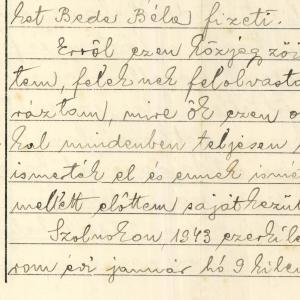 ket Bede Béla fizeti.
Erről ezen közjegzői
tem, feleknek felolvasta
ráztam, mire ők ezen o
kal mindenben teljesen
ismerték el és ennek ismé
mellett előttem sajátkezűl
Szolnokon, 1943 ezerkile
rom évi január hó 9 kilen